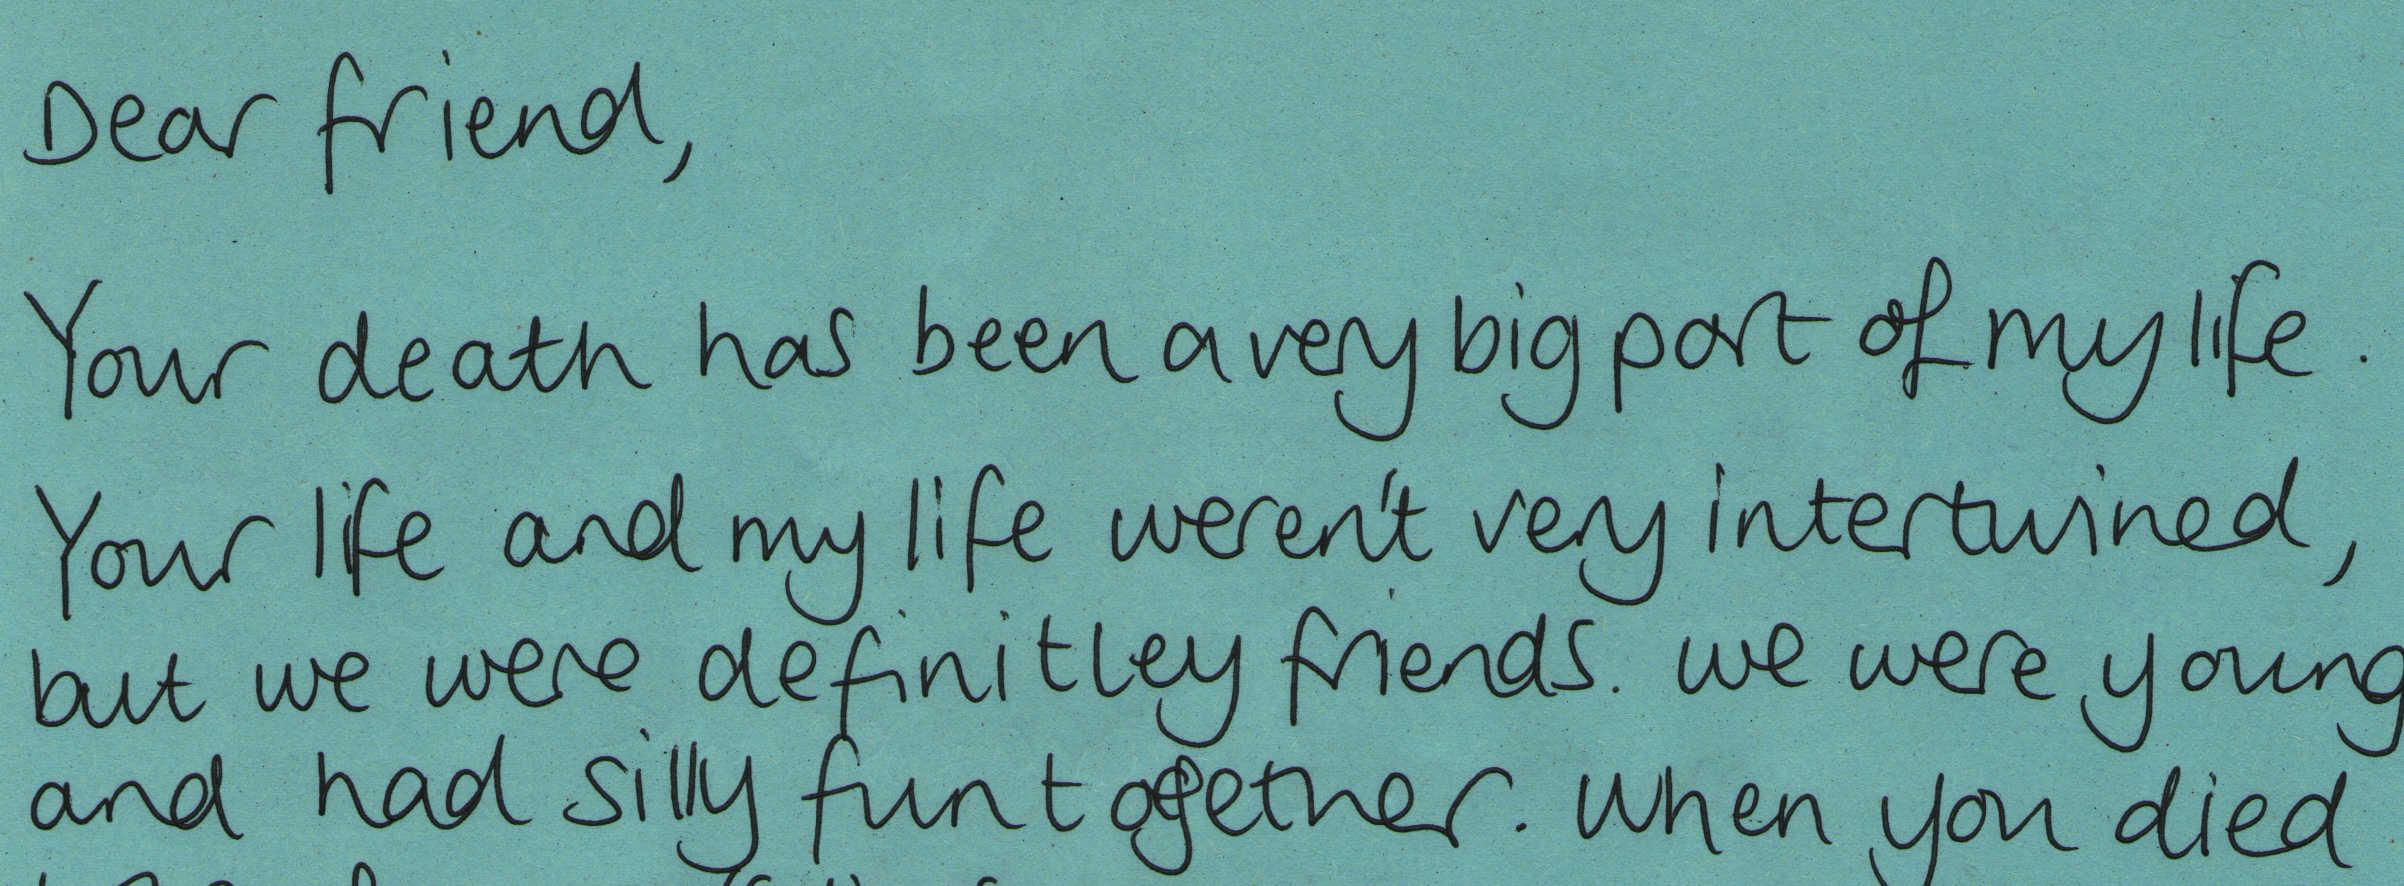 Dear friend,
Your death has been a very big part of my life.
Your life and my life weren't very intertwined,
but we were definitley friends. We were young
and had silly fun together. When you died